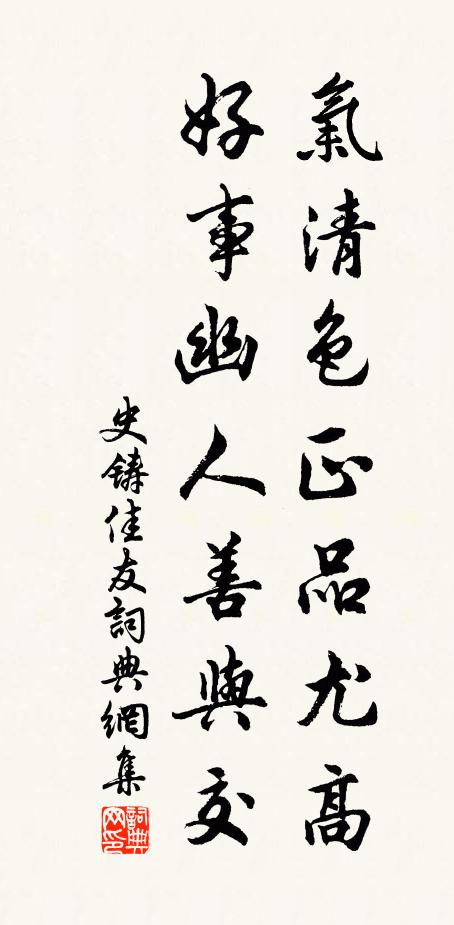 氣清色正品尤高
好事幽人善與交
史鑄佳友詞典網集
詞典网印